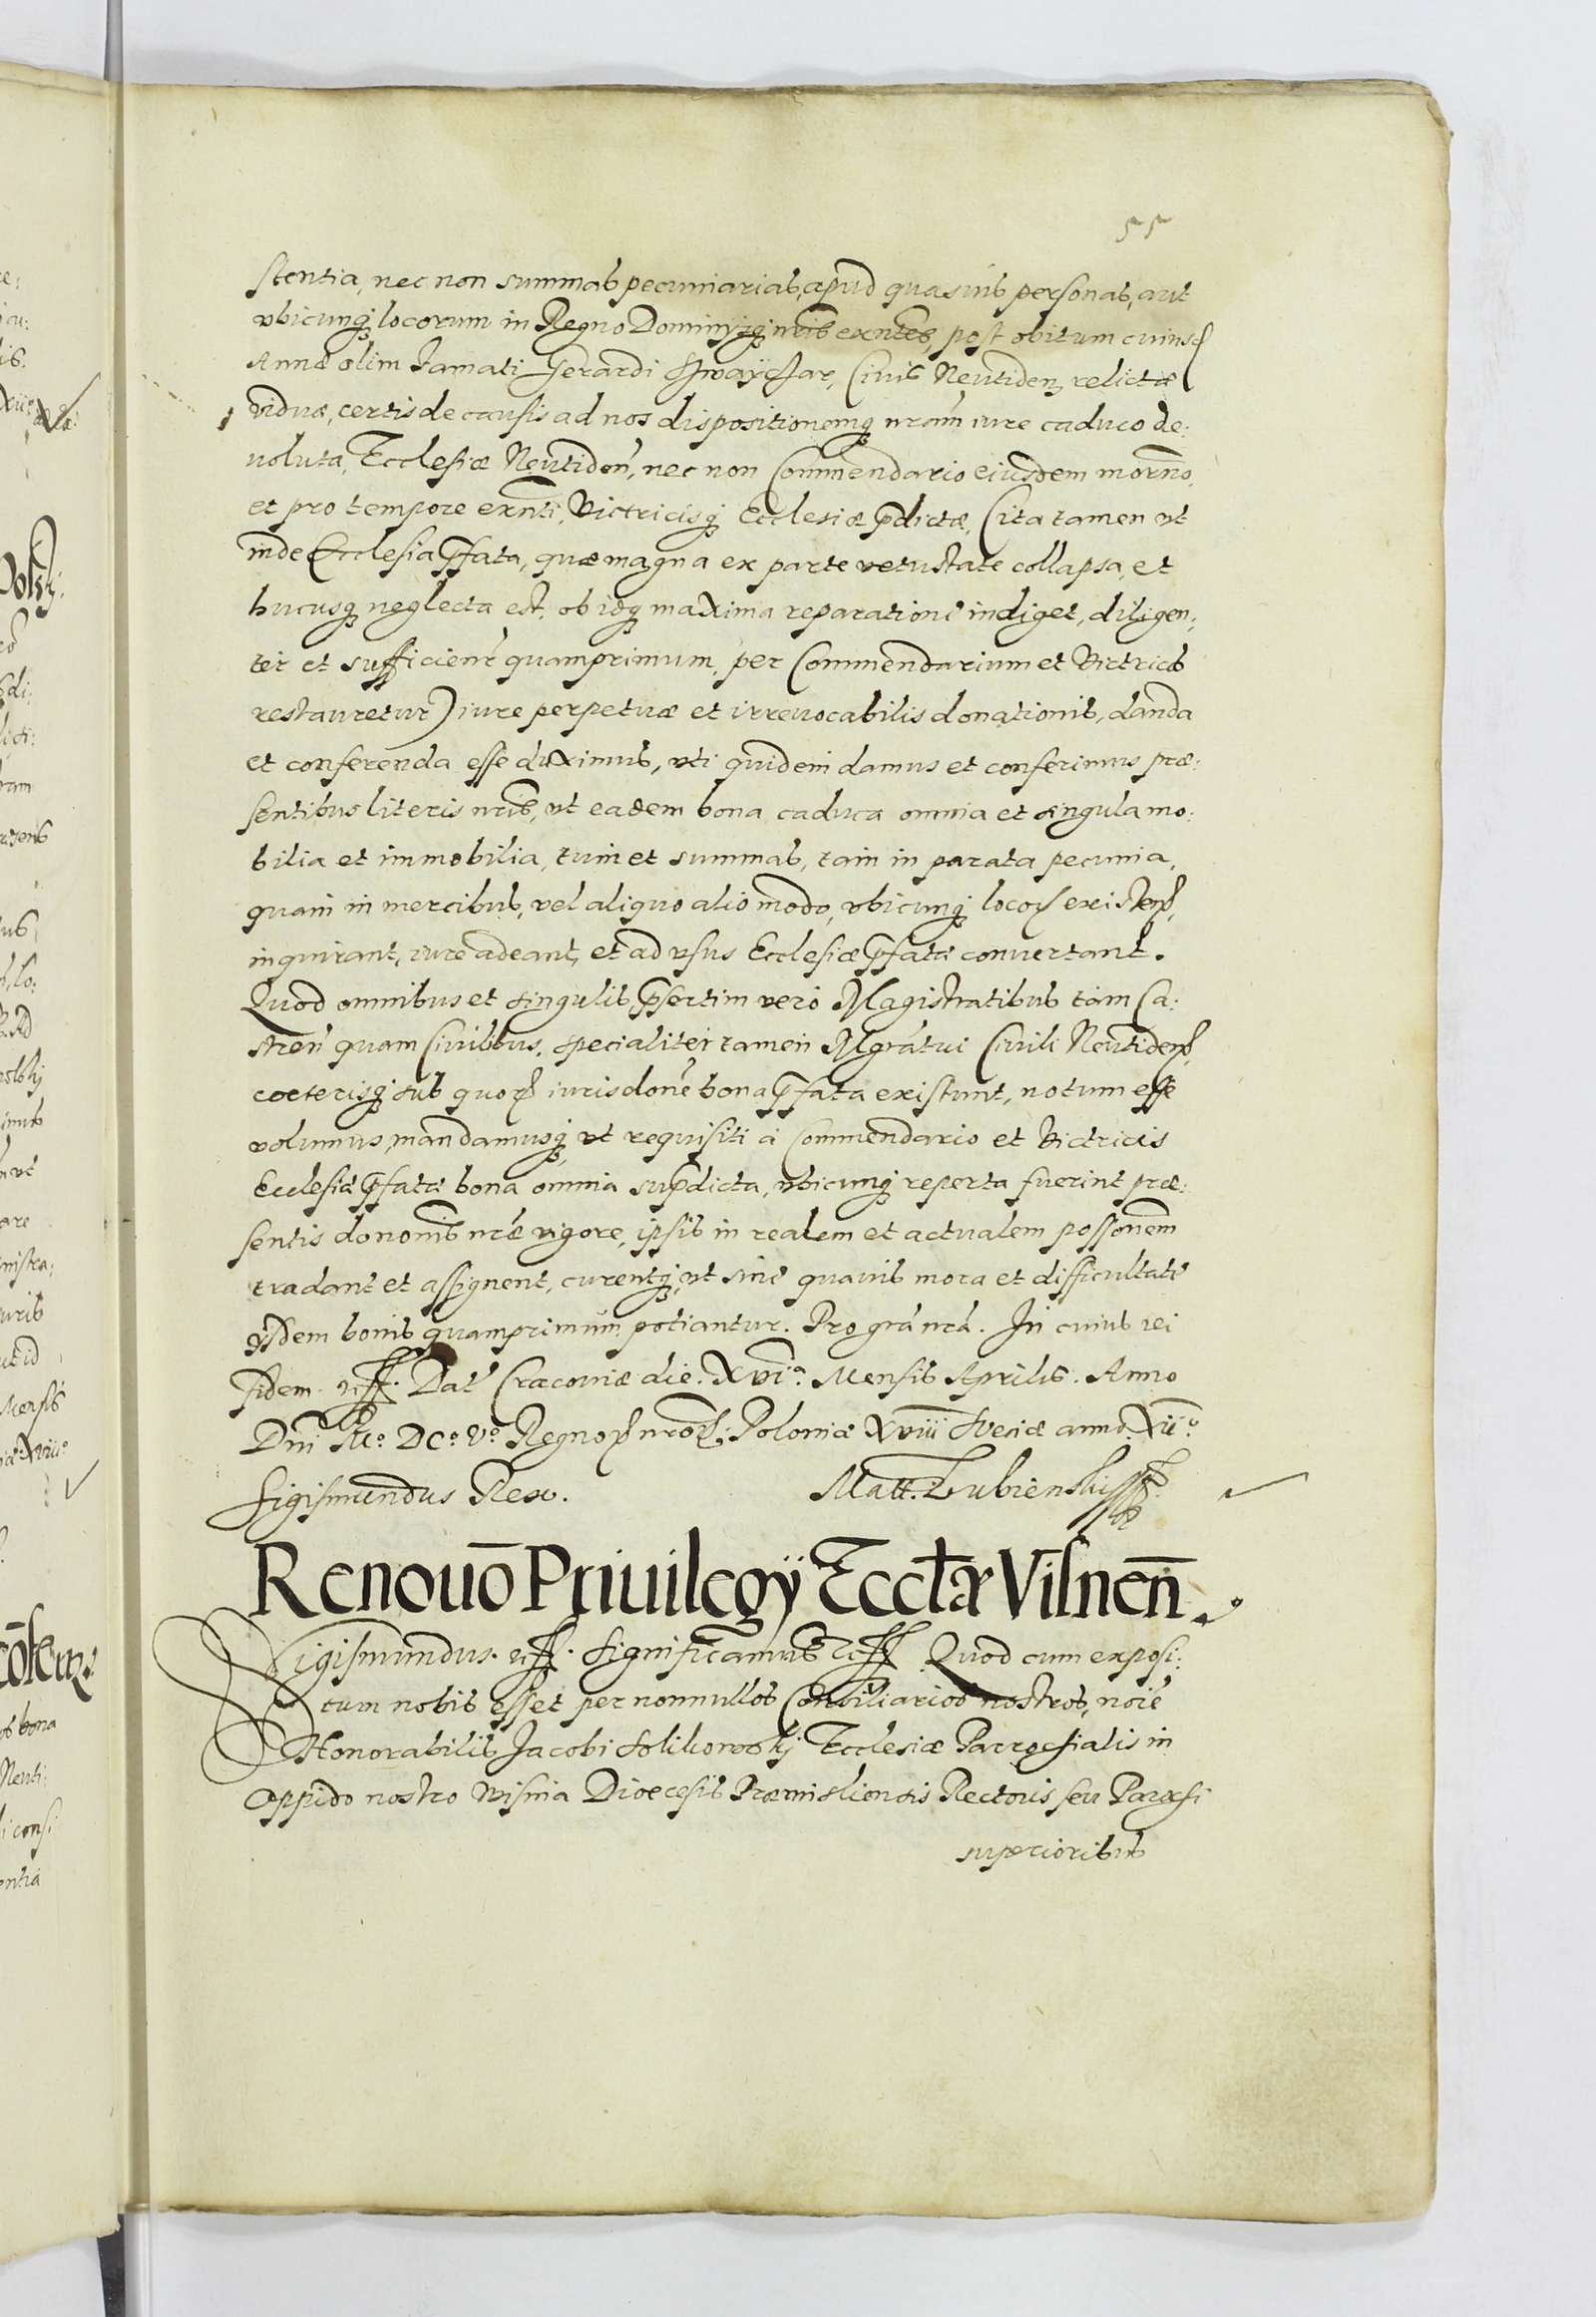 55
stentia, nec non summas pecuniarias, apud quasuis personas, aut
vbicunq; locorum in Regno Dominijsq; nris exntes, post obitum cuiusd
Annæ olim famati Gerardi Hwaÿchar, Ciuis Neutiden relictæ
viduæ, certis de causis ad nos dispositionemq; nram iure caduco de:
uoluta, Ecclesiæ Neutiden, nec non Commendario eiusdem morno,
et pro tempore exnti, Victricisq; Ecclesiæ pdictæ, (ita tamen vt
inde Ecclesia pfata, quæ magna ex parte vetustate collapsa, et
hucusq; neglecta est, ob idq; maxima reparatione indiget, diligen:
ter et sufficienr quamprimum, per Commendarium et Victrices
restauretur) iure perpetuæ et irreuocabilis donationis, danda
et conferenda esse duximus, vti quidem damus et conferimus præ:
sentibus literis nris, vt eadem bona caduca omnia et singula mo:
bilia et immobilia, tum et summas, tam in parata pecunia,
quam in mercibus, vel aliquo alio modo, vbicunq; locor existen,
inquirant, iure adeant, et ad vsus Ecclesiæ pfatæ conuertant.
Quod omnibus et singulis, psertim vero Magistratibus tam Ca:
stren quam Ciuilibus, specialiter tamen Mgratui Ciuili Neutiden,
cœterisq; sub quor iurisdone bona pfata existunt, notum esse
volumus, mandamusq; vt requisiti a Commendario et Victricis
Ecclesiæ pfatæ bona omnia supdicta, vbicunq; reperta fuerint præ:
sentis dononis nræ vigore, ipsis in realem et actualem possonem
tradant et assignent, curentq; vt sine quauis mora et difficultate
ijsdem bonis quamprimum potiantur. Pro gra nra. In cuius rei
fidem. Dat Cracouiæ die. XVI.a Mensis Aprilis. Anno
Dni Mo. DCo. Vo. Regnor nror; Poloniæ XVIII Sueciæ anno. XIIo
Sigismundus Rex. Matt. Lubienski
Renouo Priuilegÿ Eccła Visnen
Sigismundus. Significamus Quod cum exposi:
tum nobis esset per nonnullos Consiliarios nostros, noie
Honorabilis Jacobi Solikowskj Ecclesiæ Parrochialis in
oppido nostro Wisnia Dioecesis Præmisliensis Rectoris seu Parochi
superioribus